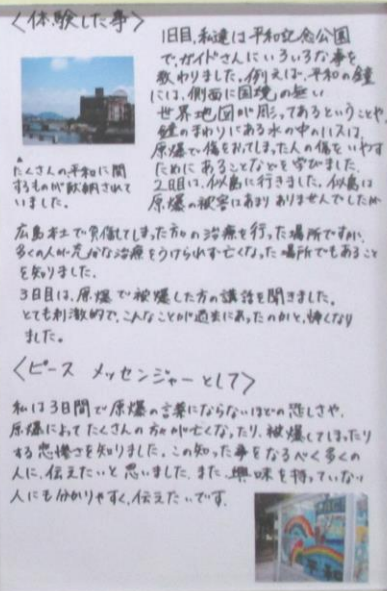 〈体験した事〉
1日目、私達は平和記念公園
で、ガイドさんにいろいろな事を
教わりました。例えば、平和の鐘
には、側面に国境の無い
世界地図が彫ってあるということや、
鐘のまわりにある水の中のハスは、
原爆で傷をおってしまった人の傷をいやす
ためにあることなどを学びました。
2日目は、似島に行きました。似島は
原爆の被害はあまりありませんでしたが
▲
たくさんの、平和に関
するものが献納されて
いました。
広島本土で負傷してしまった方々の治療を行った場所ですが、
多くの人が充分な治療をうけられず亡くなった場所でもあること
を知りました。
3日目は、原爆で被爆した方の講話を聞きました。
とても刺激的で、こんなことが過去にあったのかと、怖くなり
ました。
〈ピース メッセンジャーとして〉
私は3日間で原爆の言葉にならないほどの悲しさや、
原爆によってたくさんの方々が亡くなったり、被爆してしまったり
する悲惨さを知りました。この知った事をなるべく多くの
人に、伝えたいと思いました。また、興味を持っていない
人にも分かりやすく、伝えたいです。
平和